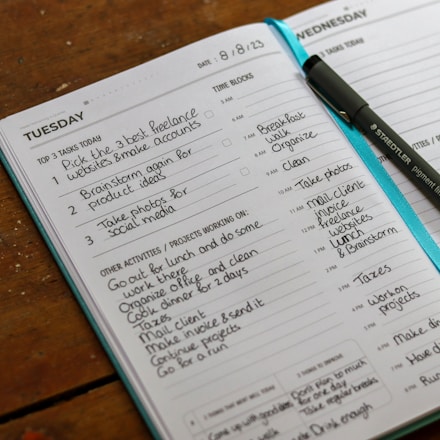 DATE: 8/8/23
WEDNESDAY
TUESDAY
TOP 3 TASKS TODAY
1 Pick the 3 best freelance
websites & make accounts
2 Brainstorm again for
product ideas
3 Take photos for
social media
OTHER ACTIVITIES / PROJECTS WORKING ON:
Go out for lunch and do some
work there
Organize office and clean
Cook dinner for 2 days
Taxes
Mail client
Make invoice & send it
Continue projects
Go for a run
TIME BLOCKS
5 AM
6 AM
7 AM Breakfast
walk
8 AM Organize
9 AM clean
10 AM Take photos
11 AM Mail client
invoice
12 PM freelance
websites
1 PM Lunch
& Brainstorm
2 PM
3 PM Taxes
4 PM Work on
projects
5 PM
6 PM Make
7 PM Have
8 PM Run
3 THINGS THAT WENT WELL TODAY
Come up with good
walk
3 THINGS TO IMPROVE
Don't plan too much
for one day
Take regular breaks
Drink enough
TOP 3 TASKS TODAY
STAEDTLER
pigment